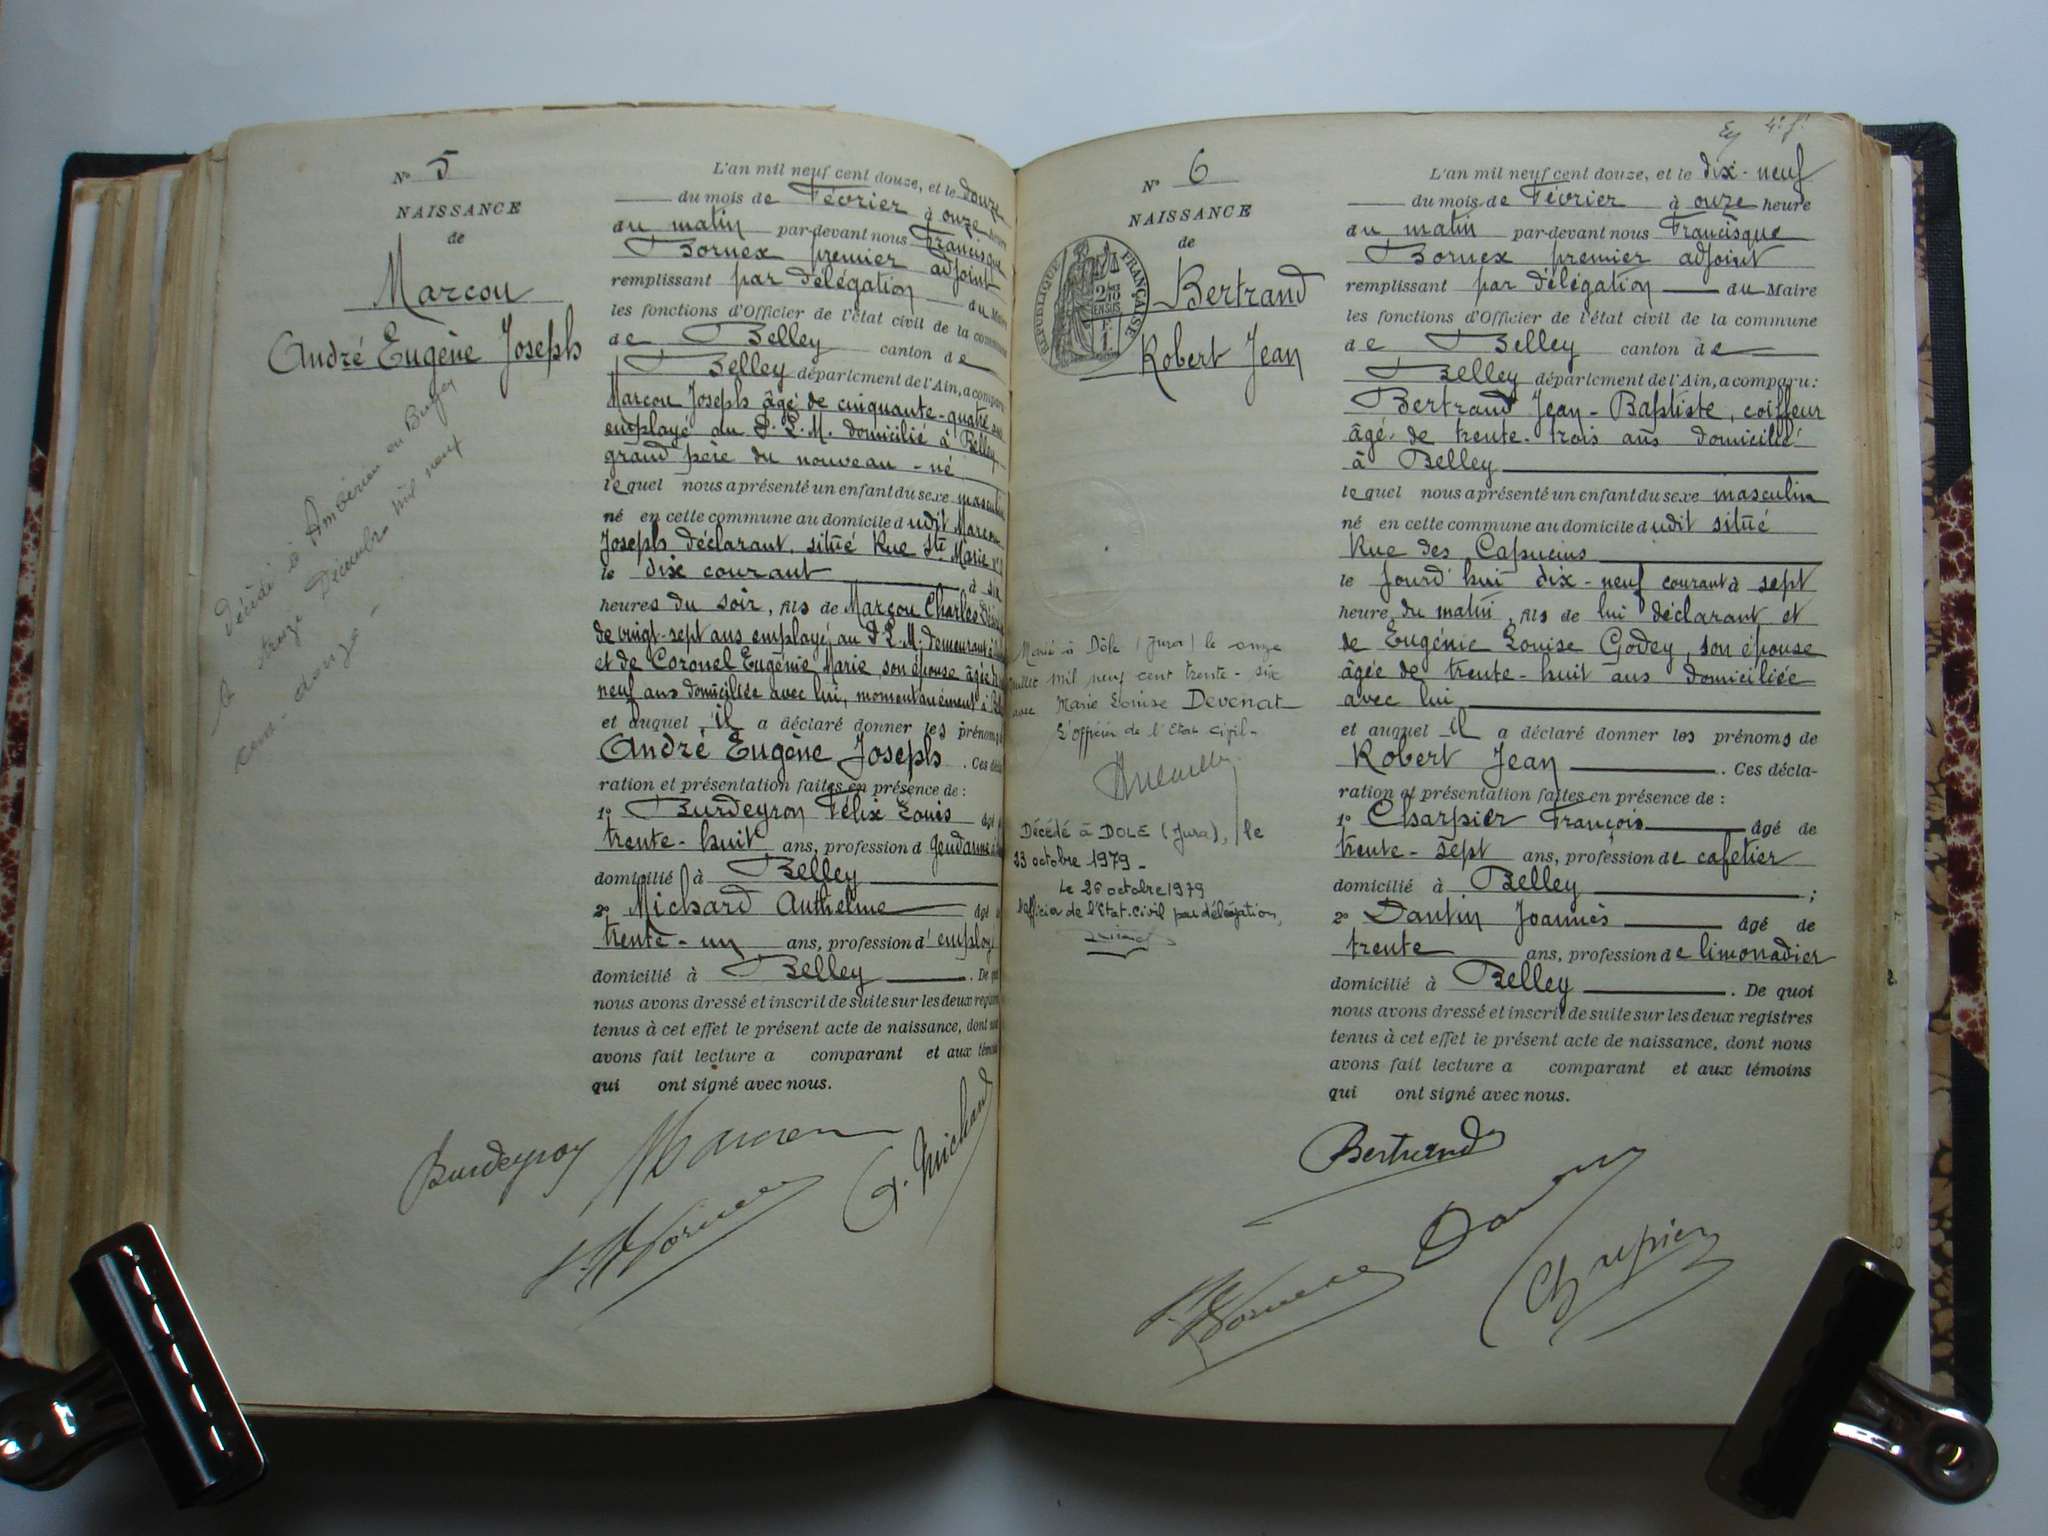 N° 5
NAISSANCE
de
Marcou
André Eugène Joseph
Décédé à Ambérieu en Bugey
le treize Décembre mil neuf
cent douze -
L'an mil neuf cent douze, et le douze
du mois de Février à onze heure
du matin par-devant nous Francisque
Bornex premier adjoint
remplissant par délégation du Maire
les fonctions d'Officier de l'état civil de la commune
de Belley canton de
Belley département de l'Ain, a comparu
Marcou Joseph âgé de cinquante-quatre ans
employé au P. L. M. domicilié à Belley
grand père du nouveau-né
lequel nous a présenté un enfant du sexe masculin
né en cette commune au domicile dudit Marcou
Joseph déclarant, situé Rue Ste Marie
le dix courant à six
heures du soir, fils de Marcou Charles
de vingt-sept ans employé au P. L. M. demeurant à
et de Coronel Eugénie Marie, son épouse âgée
neuf ans domiciliée avec lui, momentanément à
et auquel il a déclaré donner les prénoms
André Eugène Joseph. Ces décla
ration et présentation faites en présence de :
1° Burdeyron Félix Louis âgé
trente-huit ans, profession d Gendarme
domicilié à Belley
2° Michard Anthelme âgé
trente-un ans, profession d' employé
domicilié à Belley. De quoi
nous avons dressé et inscrit de suite sur les deux registres
tenus à cet effet le présent acte de naissance, dont nous
avons fait lecture a comparant et aux témoins
qui ont signé avec nous.
Burdeyron Marcou A. Michard
Bornex
N° 6
NAISSANCE
de
RÉPUBLIQUE FRANÇAISE
Bertrand
Robert Jean
Marié à Dôle (Jura) le onze
juillet mil neuf cent trente-six
avec Marie Louise Devenat
L'officier de l'Etat Civil-
Décédé à DOLE (Jura), le
23 octobre 1979 -
Le 26 octobre 1979
l'officier de l'Etat-Civil par délégation,
L'an mil neuf cent douze, et le dix-neuf
du mois de Février à onze heure
du matin par-devant nous Francisque
Bornex premier adjoint
remplissant par délégation du Maire
les fonctions d'Officier de l'état civil de la commune
de Belley canton de
Belley département de l'Ain, a comparu :
Bertrand Jean-Baptiste, coiffeur
âgé de trente-trois ans domicilié
à Belley
lequel nous a présenté un enfant du sexe masculin
né en cette commune au domicile dudit situé
Rue des Capucins
le jourd'hui dix-neuf courant à sept
heure du matin, fils de lui déclarant et
de Eugénie Louise Godey, son épouse
âgée de trente-huit ans domiciliée
avec lui
et auquel il a déclaré donner les prénoms de
Robert Jean. Ces décla-
ration et présentation faites en présence de :
1° Charpier François âgé de
trente-sept ans, profession de cafetier
domicilié à Belley ;
2° Dantin Joannès âgé de
trente ans, profession de limonadier
domicilié à Belley. De quoi
nous avons dressé et inscrit de suite sur les deux registres
tenus à cet effet le présent acte de naissance, dont nous
avons fait lecture a comparant et aux témoins
qui ont signé avec nous.
Bertrand
Bornex Dantin Charpier